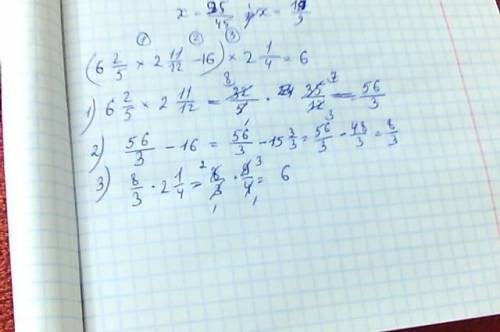 x = 95/45 ; x = 19/3
① ② ③
(6 2/5 × 2 11/12 - 16) × 2 1/4 = 6
1) 6 2/5 × 2 11/12 = 32/5 · 35/12 = 56/3
2) 56/3 - 16 = 56/3 - 15 3/3 = 56/3 - 48/3 = 8/3
3) 8/3 · 2 1/4 = 8/3 · 9/4 = 6